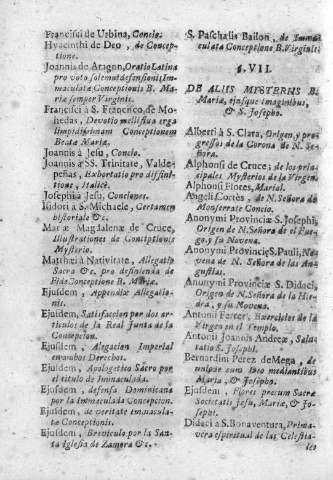 Francisci de Urbina, Concio.
Hyacinthi de Deo, de Concep-
tione.
Joannis de Aragon, Oratio Latina
pro voto solemni defensionis Im-
maculatæ Conceptionis B. Ma-
riæ semper Virginis.
Francisci à S. Francisco, de Mo-
ledas, Devotio melliflua erga
limpidissimam Conceptionem
Beatæ Mariæ.
Joannis à Jesu, Concio.
Joannis à SS. Trinitate, Valde-
peñas, Exhortatio pro diffini-
tione, Italicè.
Josephi à Jesu, Conciones.
Isidori à S. Michaele, Certamen
historiale &c.
Mariæ Magdalenæ de Cruce,
Illustrationes de Conceptionis
Mysterio.
Matthæi à Nativitate, Allegatio
Sacra &c. pro definienda de
Fide Conceptione B. Mariæ.
Ejusdem, Appendix Allegatio-
nis.
Ejusdem, Satisfaccion por dos ar-
ticulos de la Real Junta de la
Concepcion.
Ejusdem, Alegacion Imperial
en ambos Derechos.
Ejusdem, Apologetico Sacro por
el titulo de Inmaculada.
Ejusdem, defensa Dominicana
por la Immaculada Concepcion.
Ejusdem, de veritate immacula-
tæ Conceptionis.
Ejusdem, Breviculo por la San-
ta Iglesia de Zamora &c.
S. Paschalis Bailon, de Imma-
culata Conceptione B. Virginis.
§. VII.
DE ALIIS MYSTERIIS B.
Mariæ, ejusque imaginibus,
& S. Josepho.
Alberti à S. Clara, Origen, y pro-
gressos de la Corona de N. Se-
ñora.
Alphonsi de Cruce; de los prin-
cipales Mysterios de la Virgen.
Alphonsi Flores, Marial.
Angeli Cortès, de N. Señora de
Monserrate Concio.
Anonymi Provinciæ S. Josephi,
Origen de N. Señora de el Fue-
go, y su Novena.
Anonymi Provinciæ S. Pauli, No-
vena de N. Señora de las An-
gustias.
Anonymi Provinciæ S. Didaci,
Origen de N. Señora de la Hie-
dra, y su Novena.
Antonii Ferrer, Exercicios de la
Virgen en el Templo.
Antonii Joannis Andreæ, Salu-
tatio S. Josephi.
Bernardini Perez de Mega, de
Maria, & Josepho.
Ejusdem, Flores precum Sacræ
Societatis Jesu, Mariæ, & Jo-
sephi.
Didaci à S. Bonaventura, Prima-
vera espiritual de las Celestia-
les